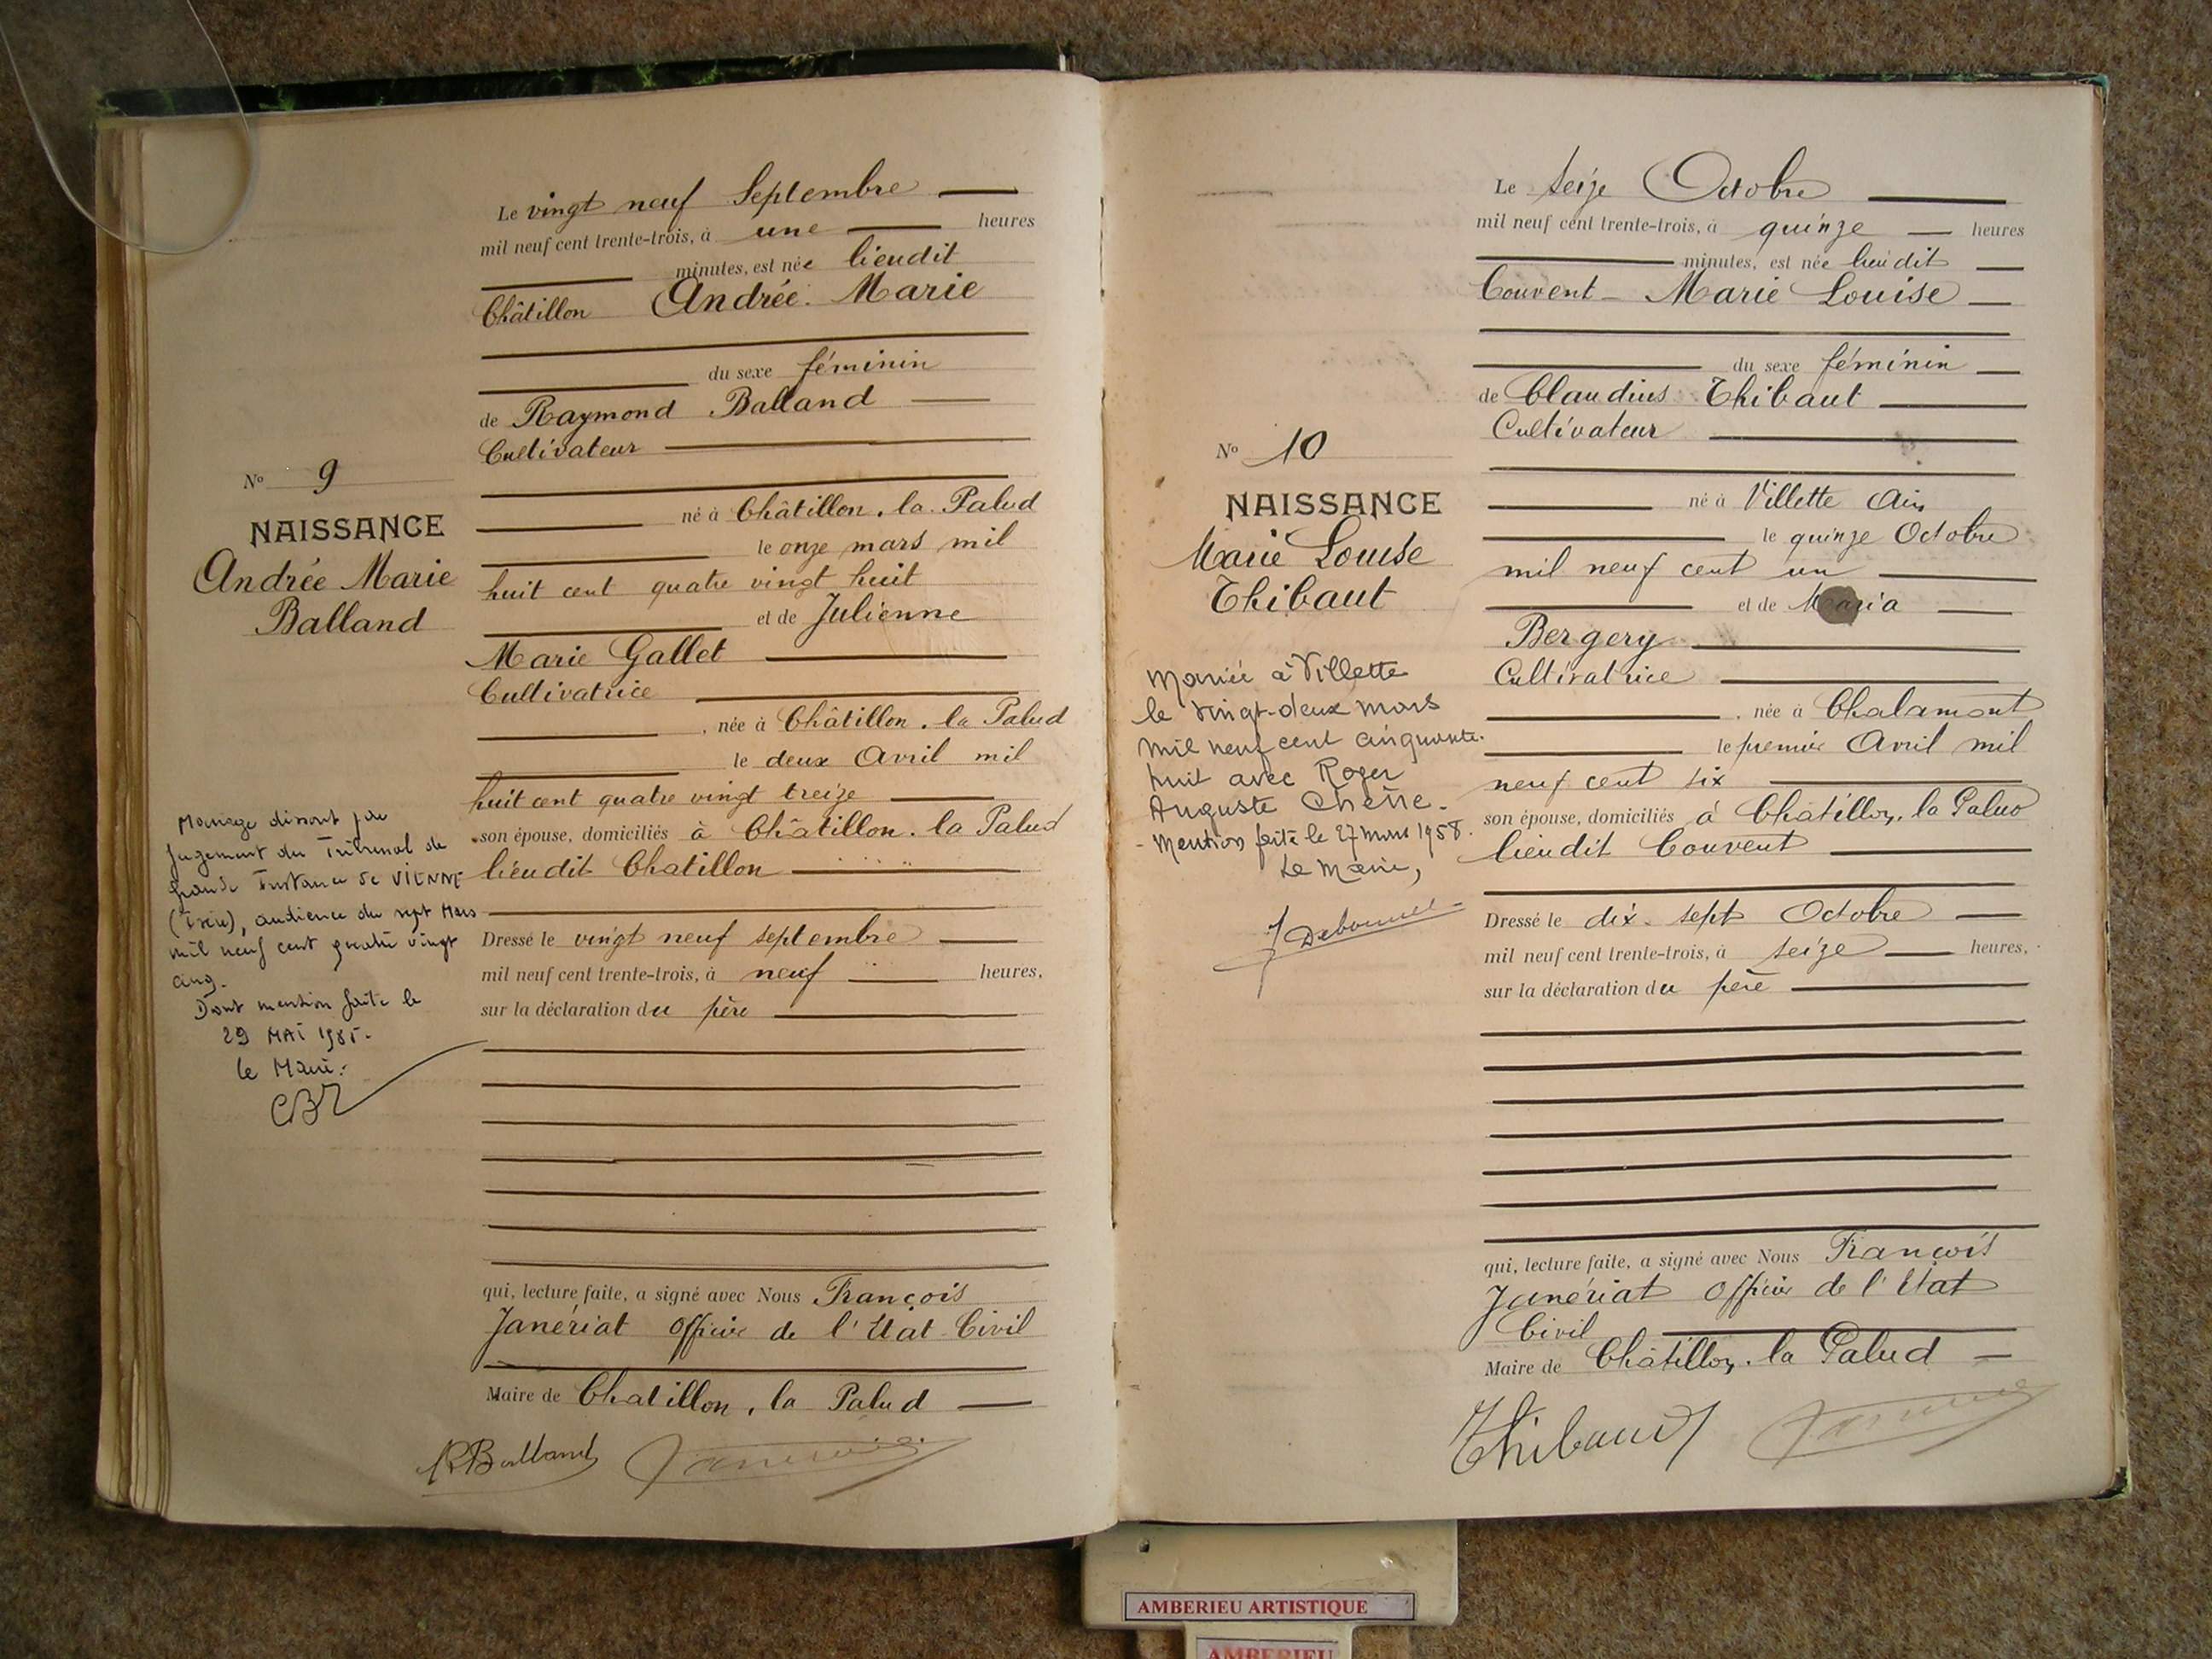 Le vingt neuf Septembre
mil neuf cent trente-trois, à une heures
minutes, est née lieudit
Châtillon Andrée Marie
du sexe féminin
de Raymond Balland
Cultivateur
né à Châtillon. la Palud
le onze mars mil
huit cent quatre vingt huit
et de Julienne
Marie Gallet
Cultivatrice
, née à Châtillon. la Palud
le deux Avril mil
huit cent quatre vingt treize
son épouse, domiciliés à Châtillon. la Palud
lieudit Chatillon
Dressé le vingt neuf septembre
mil neuf cent trente-trois, à neuf heures,
sur la déclaration du père
qui, lecture faite, a signé avec Nous François
Janériat Officier de l'Etat Civil
Maire de Chatillon. la Palud
RBalland
No 9
NAISSANCE
Andrée Marie
Balland
Mariage dissout par
Jugement du Tribunal de
Grande Instance de VIENNE
(Isère), audience du sept Mars
mil neuf cent quatre vingt
cinq.
Dont mention faite le
29 MAI 1985.
Le Maire:
Le seize Octobre
mil neuf cent trente-trois, à quinze heures
minutes, est née lieudit
Couvent - Marie Louise
du sexe féminin
de Claudius Thibaut
Cultivateur
né à Villette Ain
le quinze Octobre
mil neuf cent un
et de Maria
Bergery
Cultivatrice
, née à Chalamont
le premier Avril mil
neuf cent six
son épouse, domiciliés à Châtillon. la Palud
lieudit Couvent
Dressé le dix. sept Octobre
mil neuf cent trente-trois, à seize heures,
sur la déclaration du père
qui, lecture faite, a signé avec Nous François
Janériat Officier de l'Etat
Civil
Maire de Châtillon. la Palud
Thibaut
No 10
NAISSANCE
Marie Louise
Thibaut
Mariée à Villette
le vingt-deux mars
mil neuf cent cinquante-
huit avec Roger
Auguste
- Mention faite le 27 mars 1958.
Le Maire,
AMBERIEU ARTISTIQUE
AMBERIEU